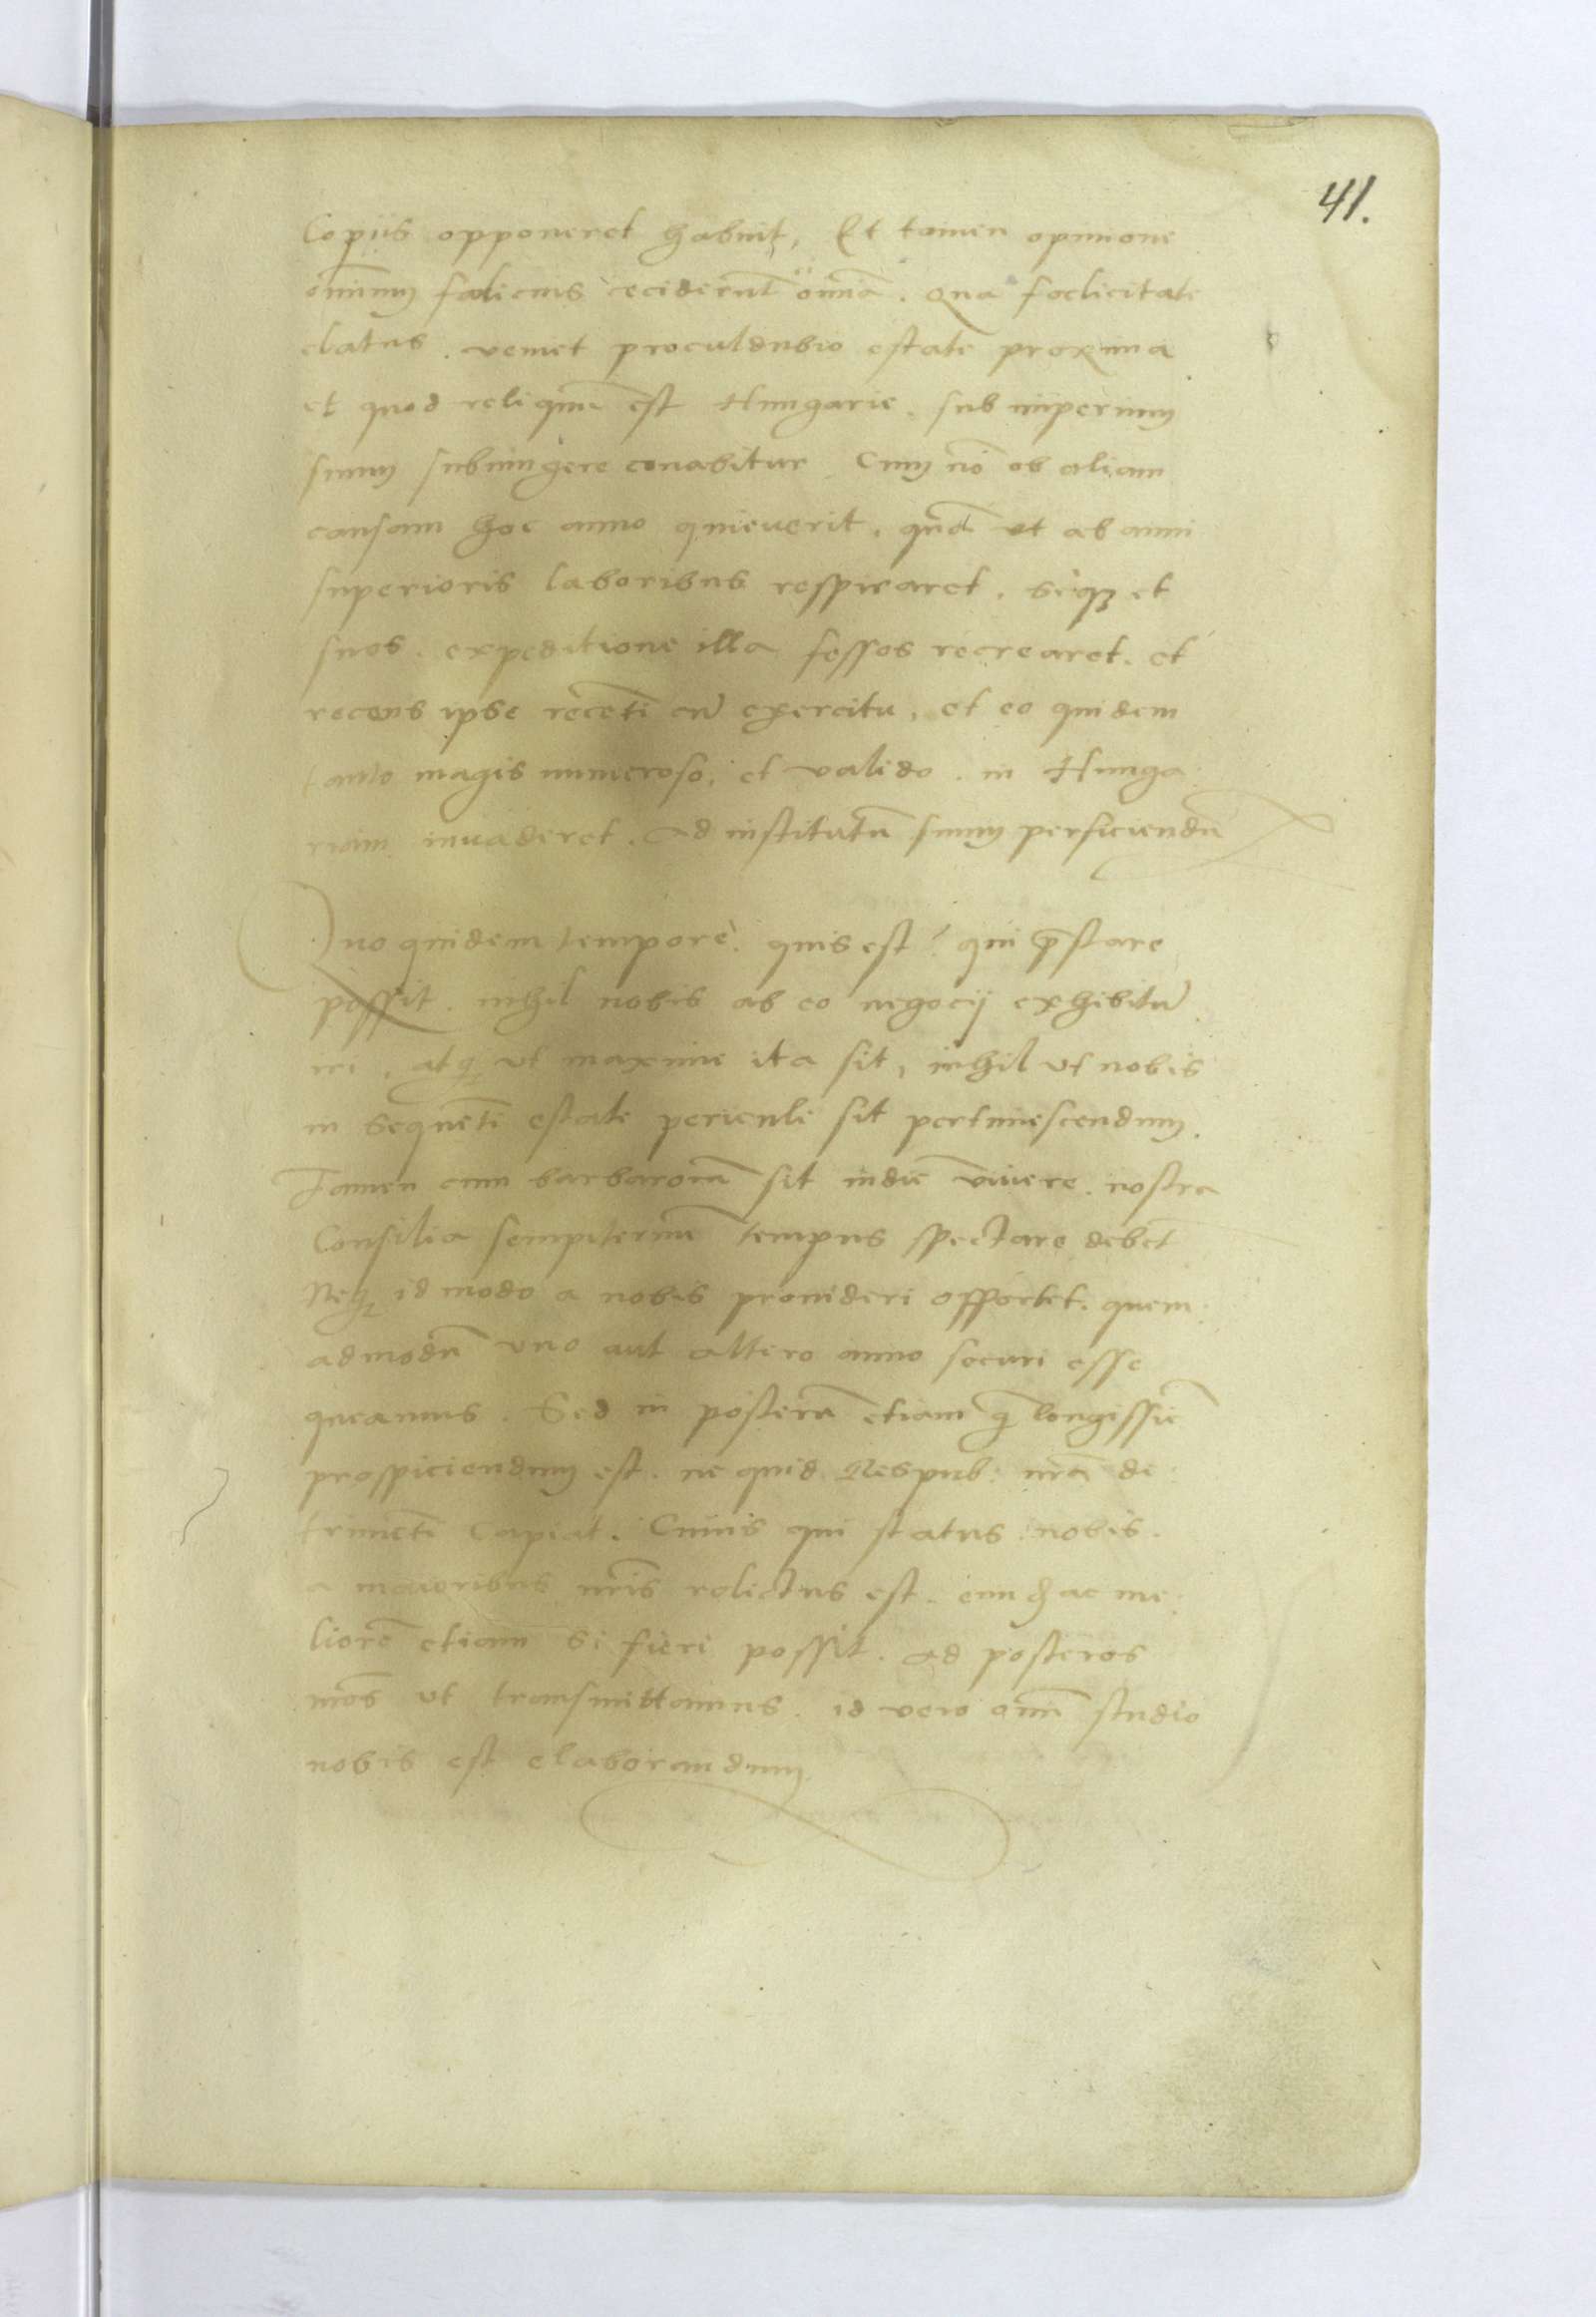 41.
Copiis opponeret habuit, Et tamen opinione
omniū fœlicius ceciderūt omīa. Qua fœlicitate
elatus. veniet proculdubio estate proxima
et quod reliquū est Hungarie. sub imperium
suum subiungere conabitur. Cum nō ob aliam
causam hoc anno quieuerit, quā ut ab anni
superioris laboribus respiraret. seq₃ et
suos. expeditione illa fessos recrearet. et
recens ipse recēti cū exercitu, et eo quidem
tanto magis numeroso, et valido. in Hunga
riam inuaderet. Ad institutū suum perficiendū
Quo quidem tempore. quis est? qui p̄stare
possit. nihil nobis ab eo negocij exhibitū
iri, atq₃ ut maxime ita sit, nihil ut nobis
in sequēti estate periculi sit pertimescendum.
Tamen cum barbarorū sit indiē viuere. nostra
Consilia sempiternū tempus spectare debēt
Neq₃ id modo a nobis prouideri opportet. quem:
admodū vno aut altero anno securi esse
queamus. Sed in posterū etiam q̄ longissīe
prospiciendum est. ne quid Respub: nr̄a de:
trimēti Capiat. Cuius qui status nobis.
a maioribus nr̄is relictus est. eundē ac me:
liorē etiam si fieri possit. ad posteros
nr̄os ut transmittamus. id vero omī studio
nobis est elaborandum